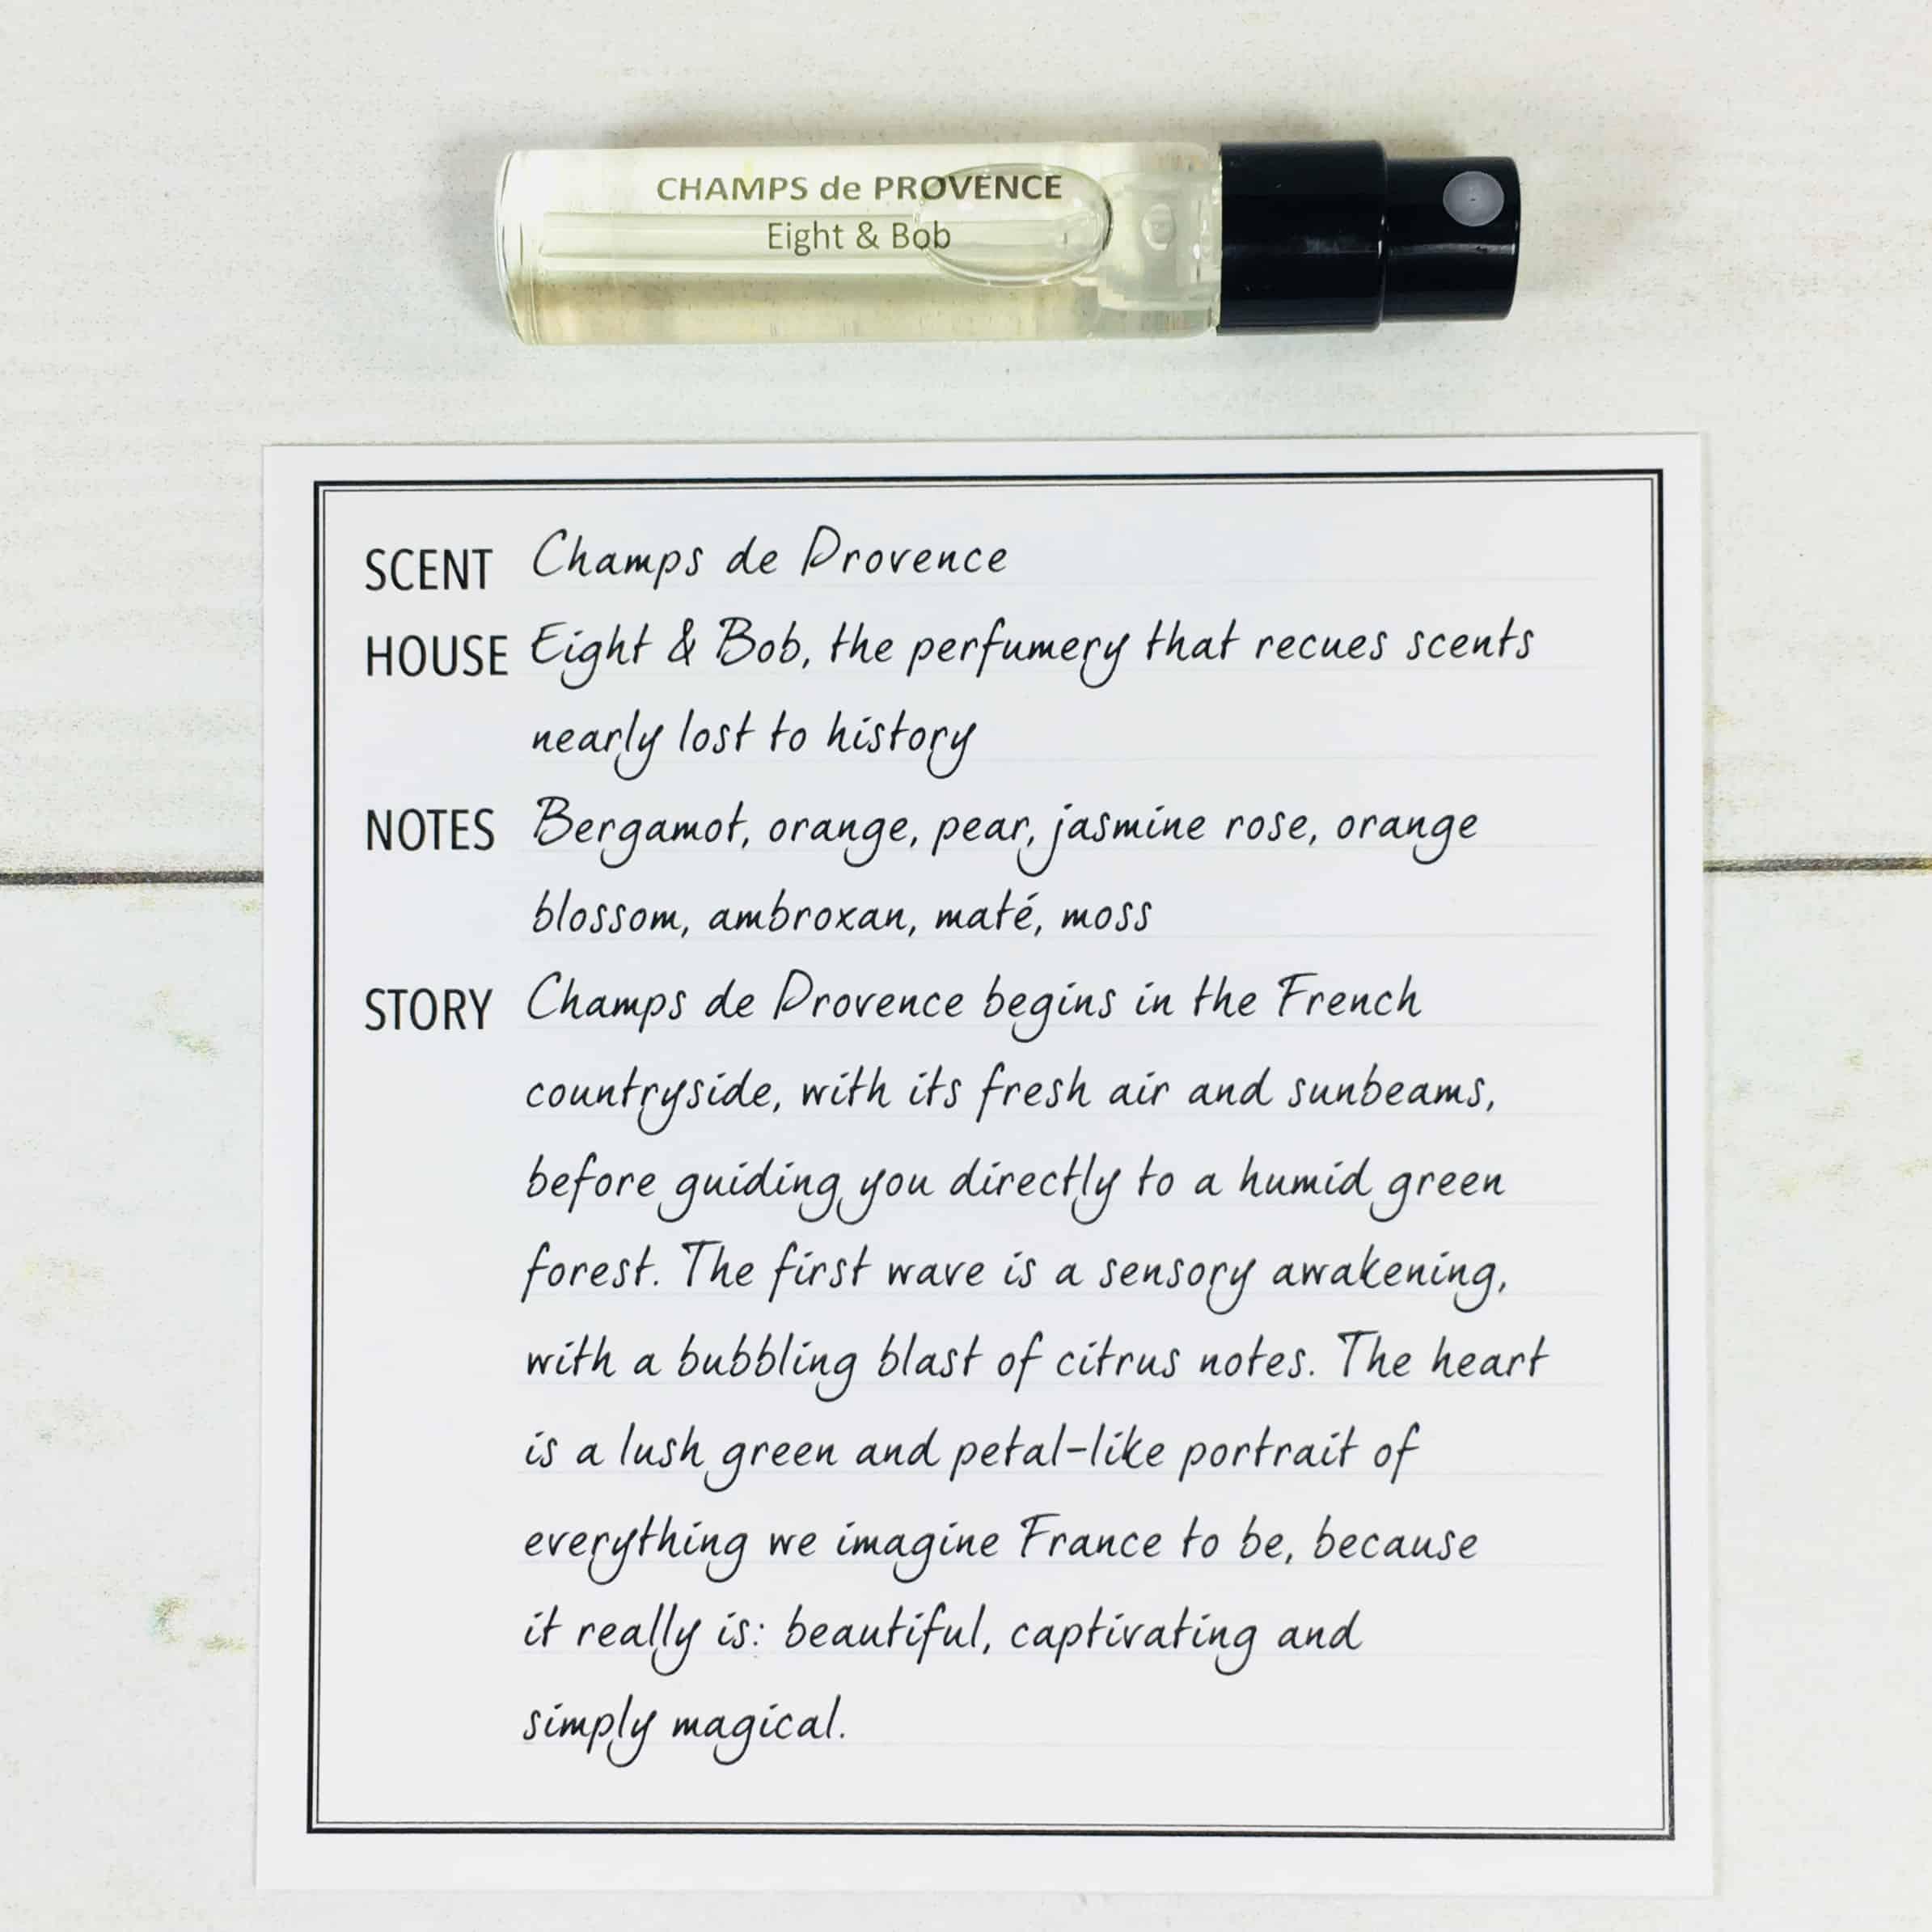 CHAMPS de PROVENCE
Eight & Bob
SCENT Champs de Provence
HOUSE Eight & Bob, the perfumery that recues scents
nearly lost to history
NOTES Bergamot, orange, pear, jasmine rose, orange
blossom, ambroxan, maté, moss
STORY Champs de Provence begins in the French
countryside, with its fresh air and sunbeams,
before guiding you directly to a humid green
forest. The first wave is a sensory awakening,
with a bubbling blast of citrus notes. The heart
is a lush green and petal-like portrait of
everything we imagine France to be, because
it really is: beautiful, captivating and
simply magical.